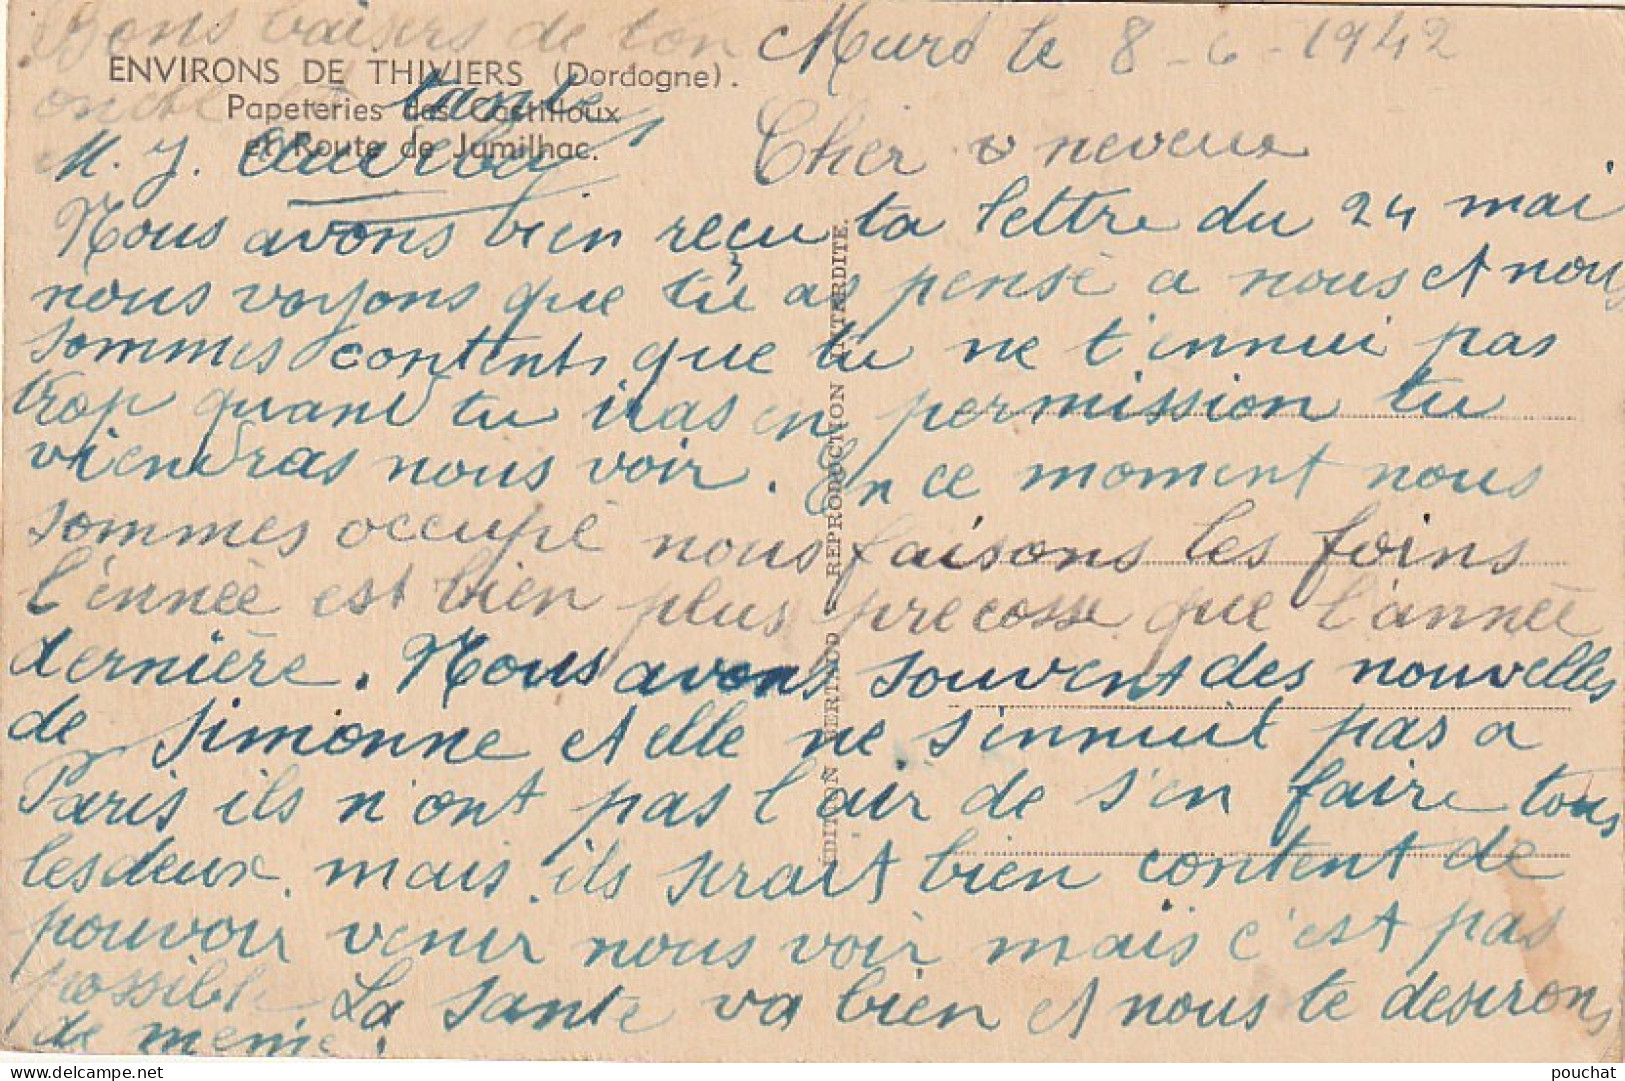 Bons baisers de ton
oncle et tante
M. J.
ENVIRONS DE THIVIERS (Dordogne).
Papeteries des Castilloux
et Route de Jumilhac.
le 8-6-1942
Cher neveux
Nous avons bien reçu ta lettre du 24 mai
nous voyons que tu as pensé a nous et nous
sommes contents que tu ne t'ennui pas
trop quand tu iras en permission tu
viendras nous voir. En ce moment nous
sommes occupé nous faisons les foins
l'innée est bien plus precosse que l'année
dernière. Nous avons souvent des nouvelles
de Simonne et elle ne s'ennuit pas a
Paris ils n'ont pas l'air de s'en faire tous
les deux. mais ils serait bien content de
pouvoir venir nous voir mais c'est pas
possible La sante va bien et nous te desirons
de meme.
ÉDITION BERTAUD - REPRODUCTION INTERDITE.
pouchat